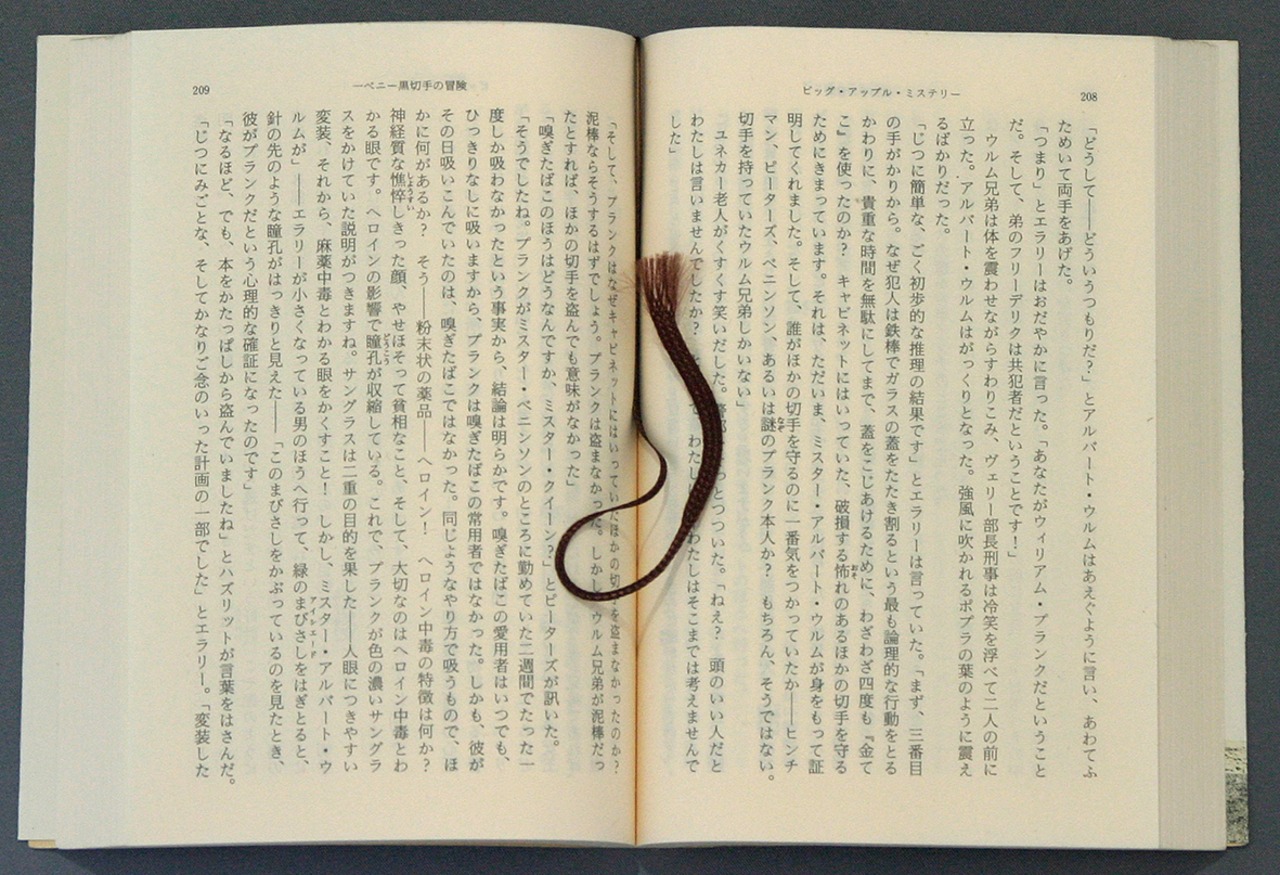 ビッグ・アップル・ミステリー
208
「どうして――どういうつもりだ?」とアルバート・ウルムはあえぐように言い、あわてふ
ためいて両手をあげた。
「つまり」とエラリーはおだやかに言った。「あなたがウィリアム・プランクだということ
だ。そして、弟のフリーデリクは共犯者だということです!」
ウルム兄弟は体を震わせながらすわりこみ、ヴェリー部長刑事は冷笑を浮べて二人の前に
立った。アルバート・ウルムはがっくりとなった。強風に吹かれるポプラの葉のように震え
るばかりだった。
「じつに簡単な、ごく初歩的な推理の結果です」とエラリーは言っていた。「まず、三番目
の手がかりから。なぜ犯人は鉄棒でガラスの蓋をたたき割るという最も論理的な行動をとる
かわりに、貴重な時間を無駄にしてまで、蓋をこじあけるために、わざわざ四度も『金て
こ』を使ったのか? キャビネットにはいっていた、破損する怖れのあるほかの切手を守る
ためにきまっています。それは、ただいま、ミスター・アルバート・ウルムが身をもって証
明してくれました。そして、誰がほかの切手を守るのに一番気をつかっていたか――ヒンチ
マン、ピーターズ、ベニンソン、あるいは謎のプランク本人か? もちろん、そうではない。
切手を持っていたウルム兄弟しかいない」
ユネカー老人がくすくす笑いだした。 っとつついた。「ねえ? 頭のいい人だと
わたしは言いませんでしたか? わたし わたしはそこまでは考えませんで
した」
一ペニー黒切手の冒険
209
「そして、プランクはなぜキャビネットにはいっていたほかの切 を盗まなかったのか?
泥棒ならそうするはずでしょう。プランクは盗まなかった。しかしウルム兄弟が泥棒だっ
たとすれば、ほかの切手を盗んでも意味がなかった」
「嗅ぎたばこのほうはどうなんですか、ミスター・クイーン?」とピーターズが訊いた。
「そうでしたね。プランクがミスター・ベニンソンのところに勤めていた二週間でたった一
度しか吸わなかったという事実から、結論は明らかです。嗅ぎたばこの愛用者はいつでも、
ひっきりなしに吸いますから、プランクは嗅ぎたばこの常用者ではなかった。しかも、彼が
その日吸いこんでいたのは、嗅ぎたばこではなかった。同じようなやり方で吸うもので、ほ
かに何があるか? そう――粉末状の薬品――ヘロイン! ヘロイン中毒の特徴は何か?
神経質な憔悴しきった顔、やせほそって貧相なこと、そして、大切なのはヘロイン中毒とわ
かる眼です。ヘロインの影響で瞳孔が収縮している。これで、プランクが色の濃いサングラ
スをかけていた説明がつきますね。サングラスは二重の目的を果した――人眼につきやすい
変装、それから、麻薬中毒とわかる眼をかくすこと! しかし、ミスター・アルバート・ウ
ルムが」――エラリーが小さくなっている男のほうへ行って、緑のまびさしをはぎとると、
針の先のような瞳孔がはっきりと見えた――「このまびさしをかぶっているのを見たとき、
彼がプランクだという心理的な確証になったのです」
「なるほど、でも、本をかたっぱしから盗んでいましたね」とハズリットが言葉をはさんだ。
「じつにみごとな、そしてかなりご念のいった計画の一部でした」とエラリー。「変装した